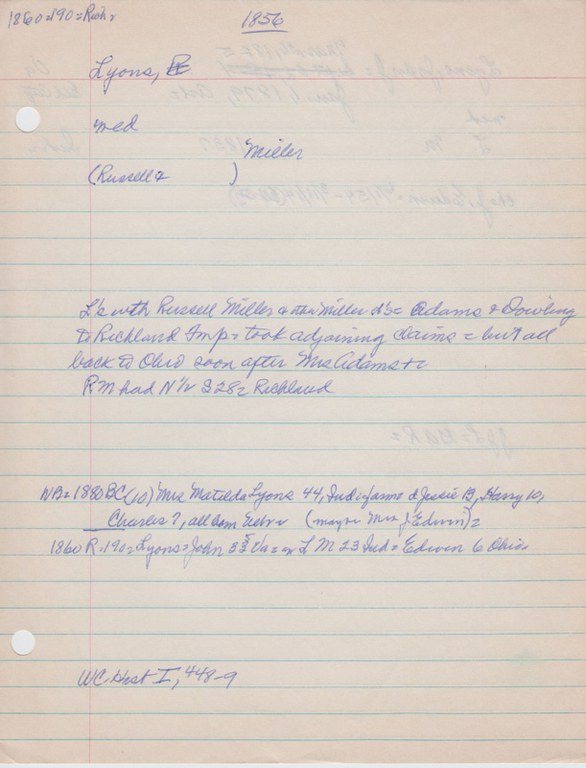 1860=190=Rich=
1856
Lyons,
med
Miller
(Russell & )
L's with Russell Miller & Miller = Adams & Dowling
to Richland Twp = took adjoining claims = but all
back to Ohio soon after Mrs Adams
RM had N½ S 28= Richland
NB=1880 BC(10) Mrs Matilda Lyons 44, Ind Jessie 13, Harry 10,
Charles 7, all born (maybe Mrs J Edwin)=
1860 R.190=Lyons=John 33 Va = L M 23 Ind= Edwin 6 Ohio
WC Hist I, 448-9